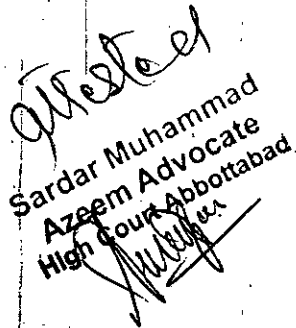 attested
Sardar Muhammad
Azeem Advocate
High Court Abbottabad